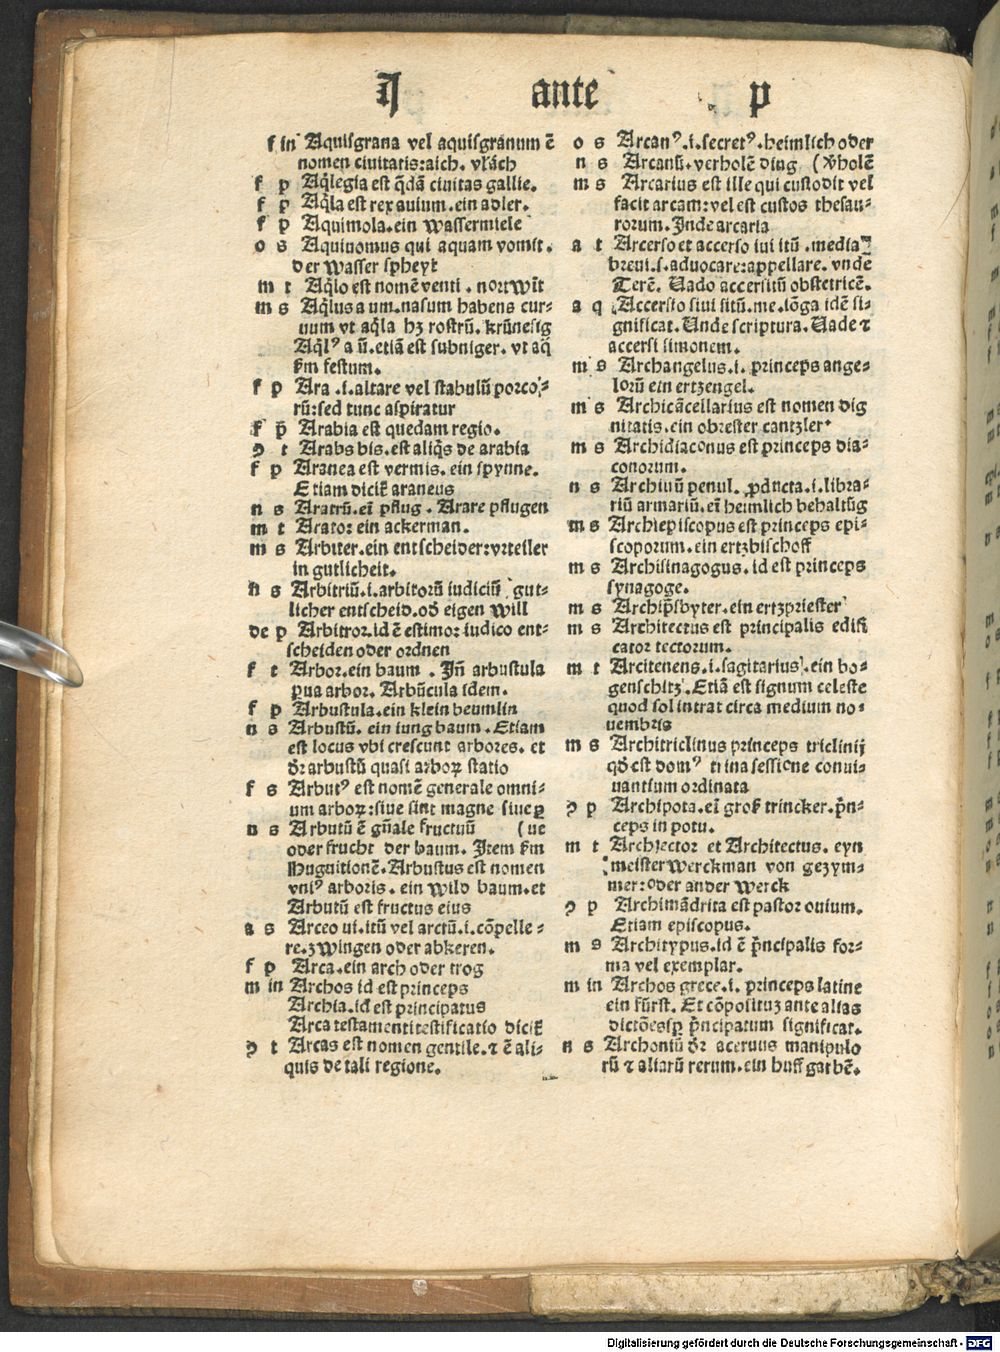 A ante p
f in Aquisgrana vel aquisgranum ē
nomen ciuitatis:aich. vľách
f p Aq̄legia est q̄dā ciuitas gallie.
f p Aq̄la est rex auium. ein adler.
f p Aquimola. ein wassermiele
o s Aquiuomus qui aquam vomit.
der wasser speyt
m t Aq̄lo est nomē venti. nortwīt
m s Aq̄lus a um. nasum habens cur-
uum vt aq̄la hʒ rostrū. krūnesig
Aq̄lꝰ a ū. etiā est subniger. vt aq̄
ẜm festum.
f p Ara .i. altare vel stabulū porco-
rū:sed tunc aspiratur
f p Arabia est quedam regio.
ꝯ t Arabs bis. est aliq̄s de arabia
f p Aranea est vermis. ein spynne.
Etiam dicit̄ araneus
n s Aratrū. eī pflug. Arare pflugen
m t Arator ein ackerman.
m s Arbiter. ein entscheider:vrteiler
in gutlicheit.
n s Arbitriū .i. arbitorū iudiciū gut-
licher entscheid. od̄ eigen will
de p Arbitror. id ē estimo: iudico ent-
scheiden oder ordnen
f t Arbor. ein baum. Jn̄ arbustula
pua arbor. Arbūcula idem.
f p Arbustula. ein klein beumlin
n s Arbustū. ein iung baum. Etiam
est locus vbi crescunt arbores. et
dr̄ arbustū quasi arboꝝ statio
f s Arbutꝰ est nomē generale omni-
um arboꝝ:siue sint magne siue ꝑ
n s Arbutū ē gn̄ale fructuū (ue
oder frucht der baum. Jtem ẜm
Huguitionē. Arbustus est nomen
vniꝰ arboris. ein wild baum. et
Arbutū est fructus eius
a s Arceo ui. itū vel arctū .i. cōpelle-
re. zwingen oder abkeren.
f p Arca. ein arch oder trog
m in Archos id est princeps
Archia. id est principatus
Arca testamenti testificatio dicit̄
ꝯ t Arcas est nomen gentile. ⁊ ē ali-
quis de tali regione.
o s Arcanꝰ .i. secretꝰ. heimlich oder
n s Arcanū. verholē ding (v̄holē
m s Arcarius est ille qui custodit vel
facit arcam:vel est custos thesau-
rorum. Jnde arcaria
a t Arcerso et accerso iui itū. media
breui .s. aduocare:appellare. vnde
Terē. Uado accersitū obstetricē.
a q Accersio siui sitū. me. lōga idē si-
gnificat. Unde scriptura. Uade ⁊
accersi simonem.
m s Archangelus .i. princeps ange-
lorū ein ertzengel.
m s Archicācellarius est nomen dig
nitatis. ein obrester cantzler
m s Archidiaconus est princeps dia-
conorum.
n s Archiuū penul. ꝓducta .i. libra-
riū armariū. eī heimlich behaltūg
m s Archiepiscopus est princeps epi-
scoporum. ein ertzbischoff
m s Archisinagogus. id est princeps
synagoge.
m s Archip̄sbyter. ein ertzpriester
m s Architectus est principalis edifi
cator tectorum.
m t Arcitenens .i. sagitarius. ein bo-
genschitz. Etiā est signum celeste
quod sol intrat circa medium no-
uembris
m s Architriclinus princeps triclinij
qd̄ est domꝰ trina sessione conui-
uantium ordinata
ꝯ p Archipota. eī groß trincker. p̄n-
ceps in potu.
m t Archjector et Architectus. eyn
meister werckman von gezym-
mer:oder ander werck
ꝯ p Archimādrita est pastor ouium.
Etiam episcopus.
m s Architypus. id ē p̄ncipalis for-
ma vel exemplar.
m in Archos grece .i. princeps latine
ein fürst. Et cōposituʒ ante alias
dictōes sꝑ p̄ncipatum significat.
n s Archoniū dr̄ aceruus manipulo
rū ⁊ aliarū rerum. ein huff garbē.
Digitalisierung gefördert durch die Deutsche Forschungsgemeinschaft - DFG